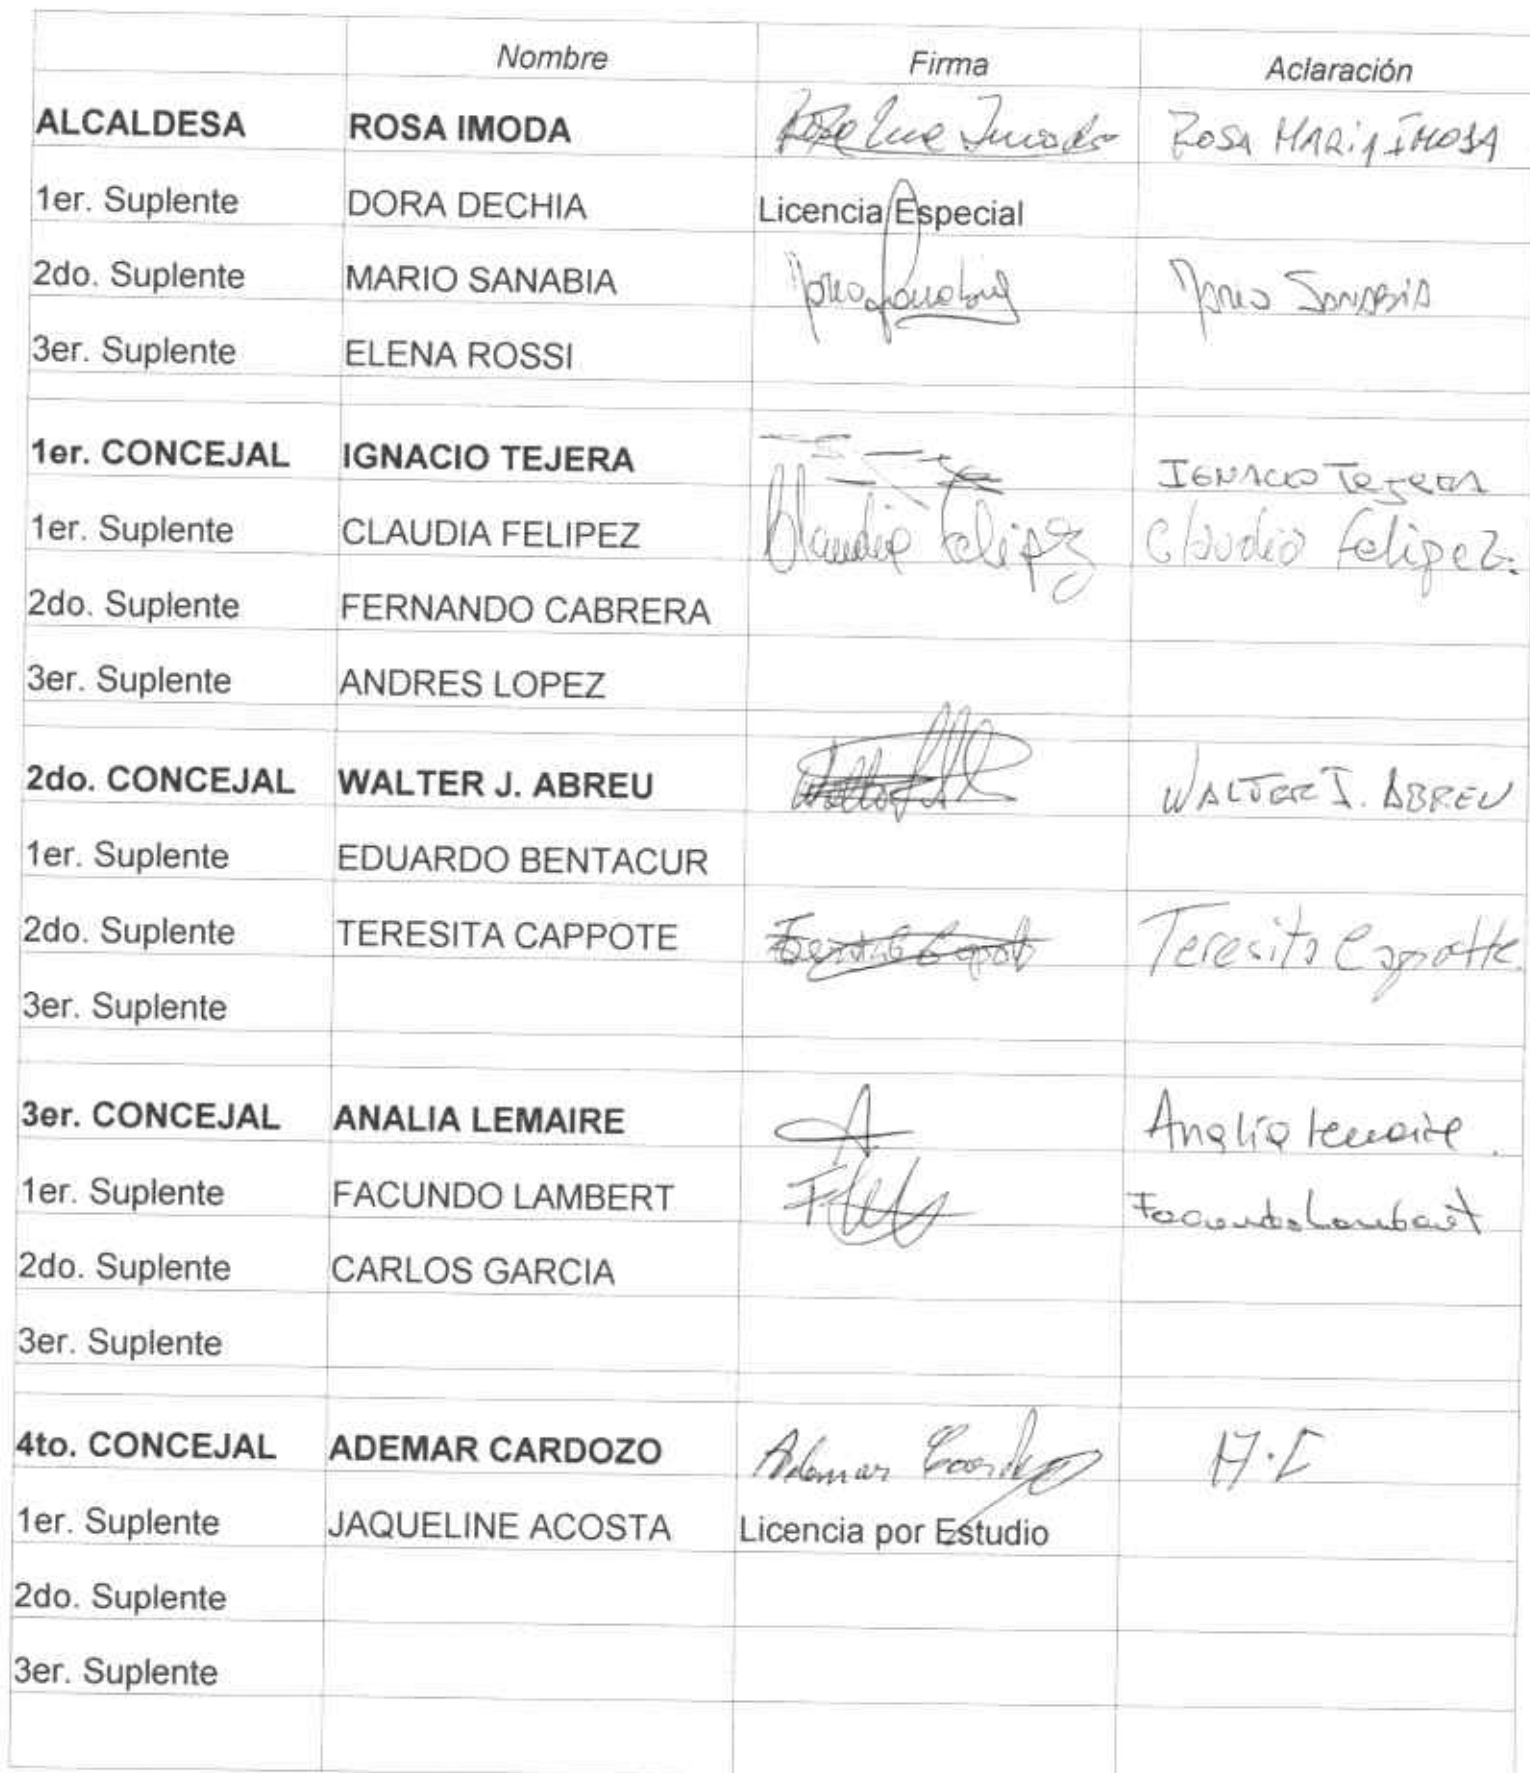 Nombre Firma Aclaración
ALCALDESA ROSA IMODA ROSA MARIA IMODA
1er. Suplente DORA DECHIA Licencia Especial
2do. Suplente MARIO SANABIA Mario SANABIA
3er. Suplente ELENA ROSSI
1er. CONCEJAL IGNACIO TEJERA IGNACIO TEJERA
1er. Suplente CLAUDIA FELIPEZ Claudia Felipez Claudia Felipez.
2do. Suplente FERNANDO CABRERA
3er. Suplente ANDRES LOPEZ
2do. CONCEJAL WALTER J. ABREU WALTER J. ABREU
1er. Suplente EDUARDO BENTACUR
2do. Suplente TERESITA CAPPOTE Teresita Capotte
3er. Suplente
3er. CONCEJAL ANALIA LEMAIRE A. Analia Lemaire.
1er. Suplente FACUNDO LAMBERT Facundo Lambert
2do. Suplente CARLOS GARCIA
3er. Suplente
4to. CONCEJAL ADEMAR CARDOZO Ademar Cardozo A.C
1er. Suplente JAQUELINE ACOSTA Licencia por Estudio
2do. Suplente
3er. Suplente